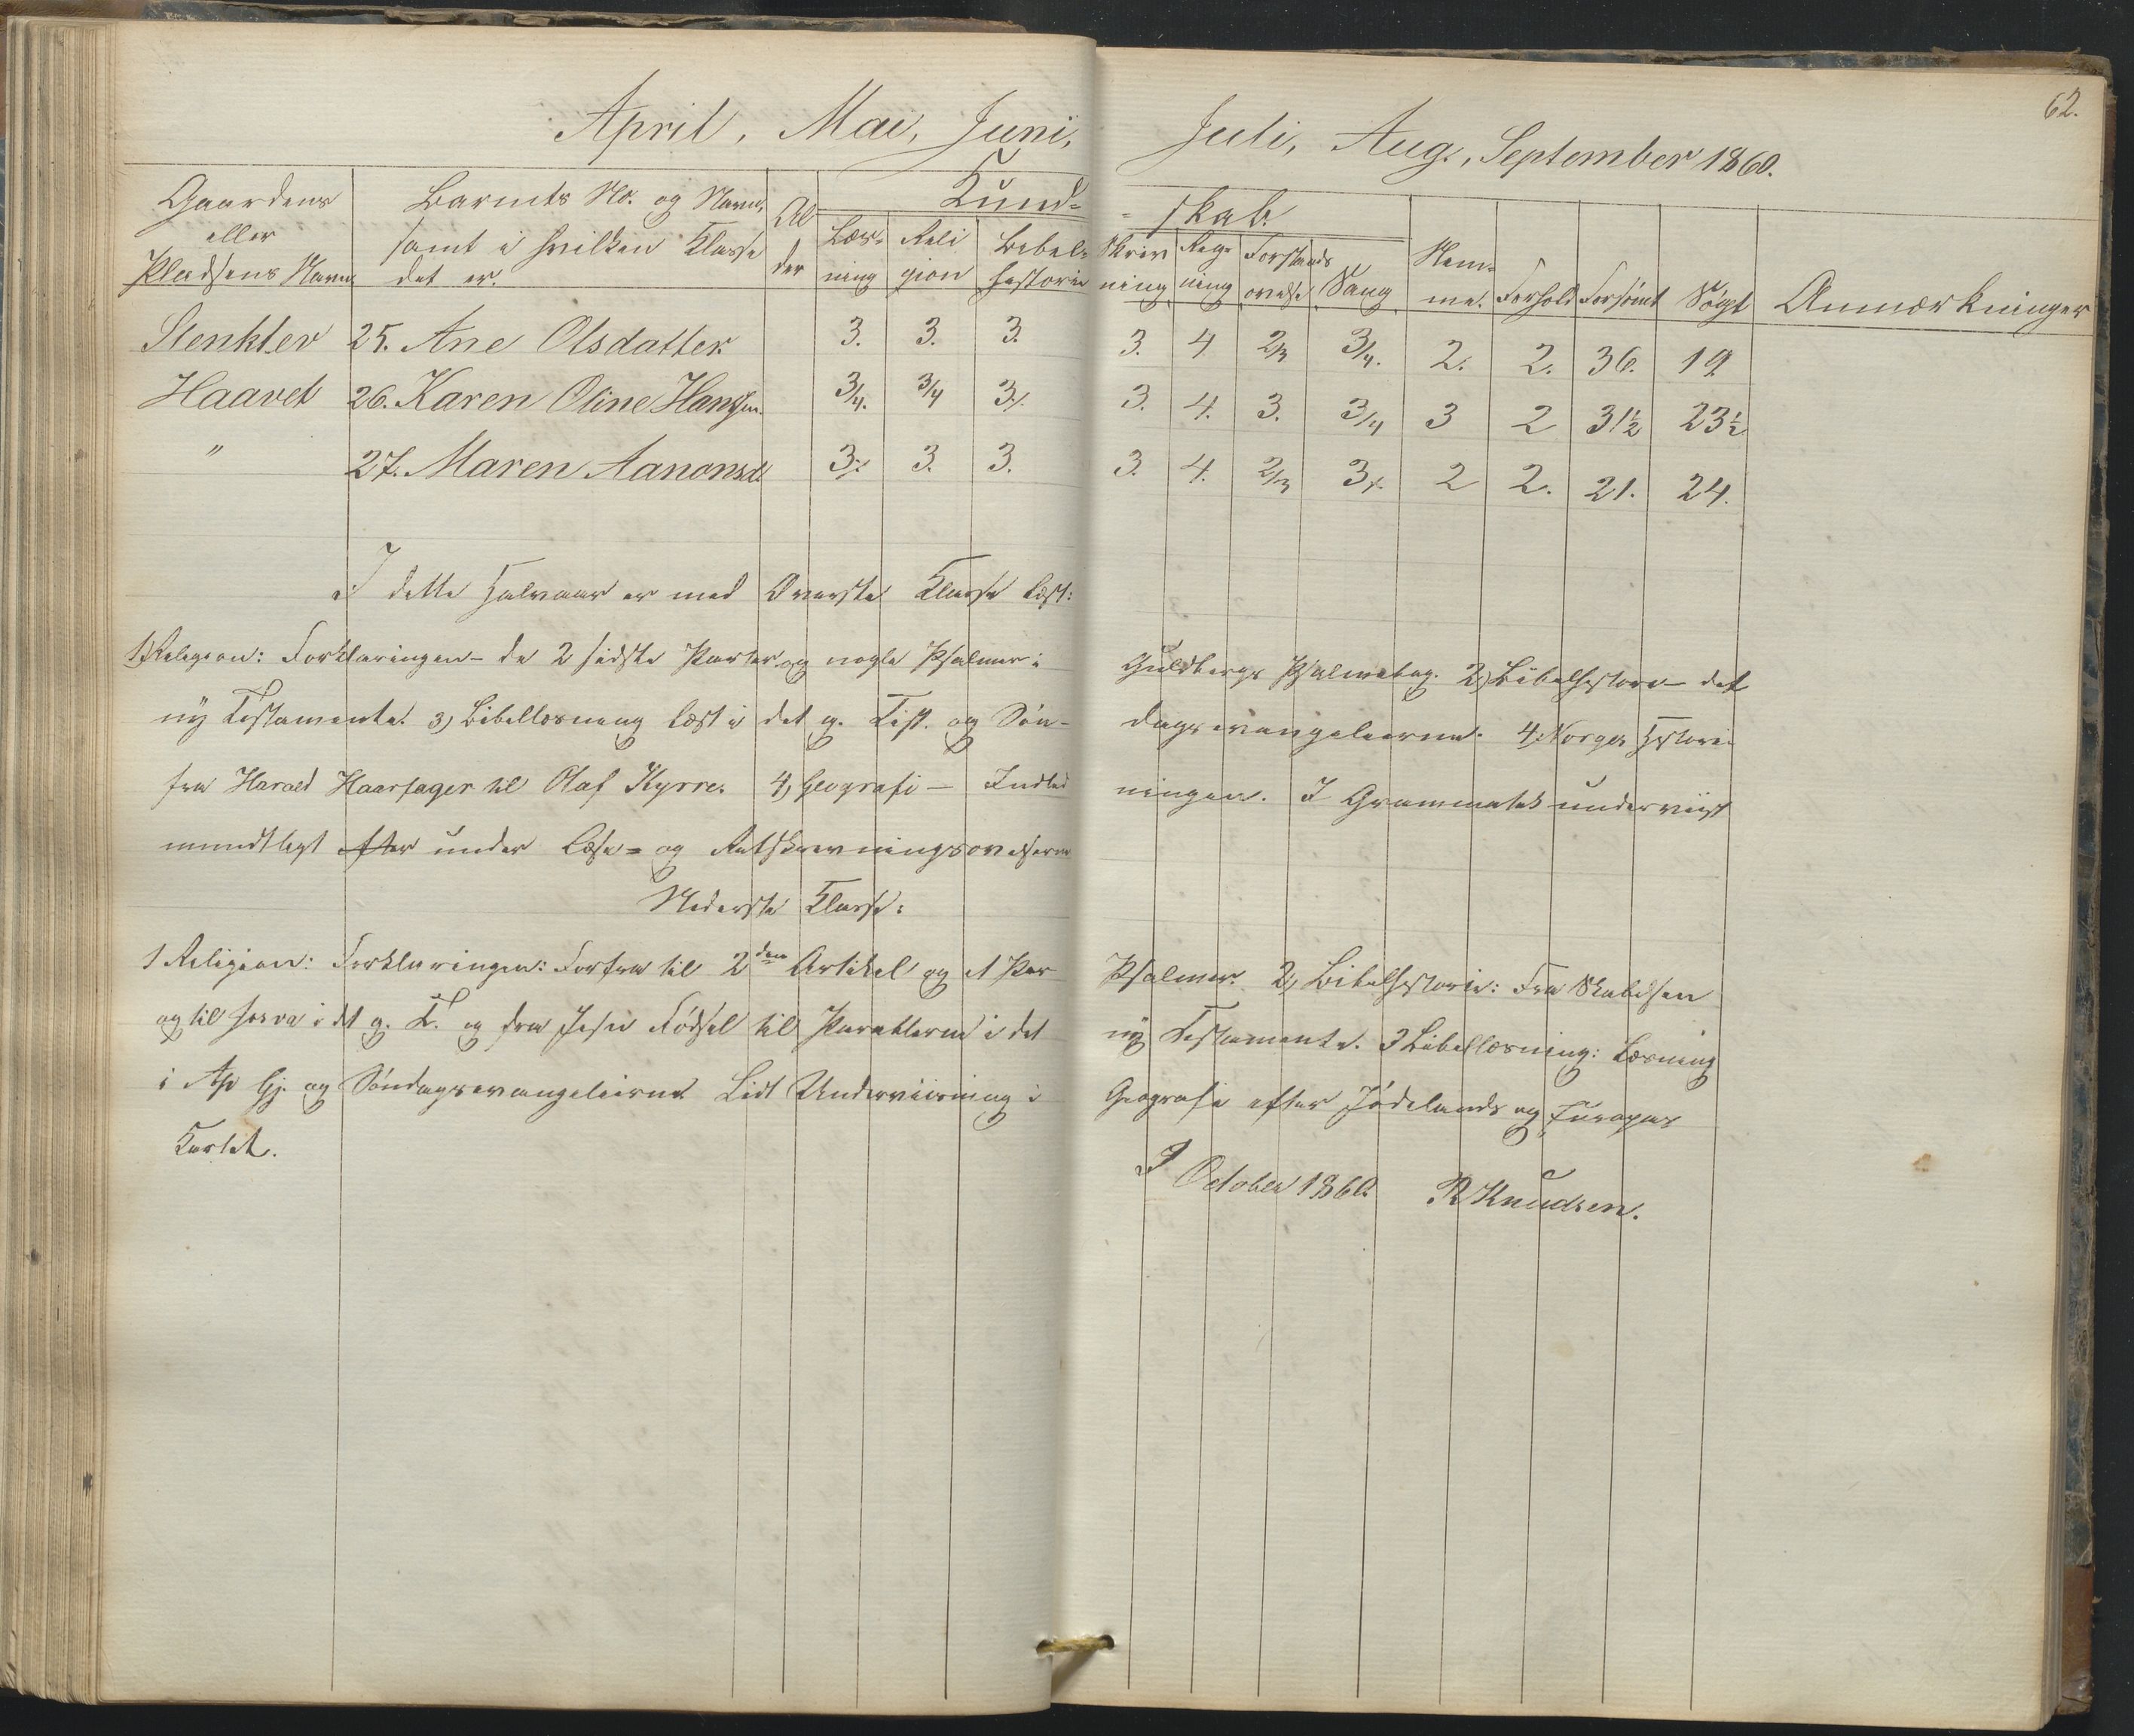 62.
April, Mai, Juni, Juli, Aug., September 1860.
Gaardens eller Pladsens Navn
Barnets No. og Navn, samt i hvilken Klasse det er.
Alder
Kund- = skab.
Læsning
Religion
Bibelhistorie
Skrivning
Regning
Forstandsøvelse
Sang
Hemme.
Forhold
Forsømt
Søgt
Anmærkninger
Stenklev 25. Ane Olsdatter. 3. 3. 3. 3. 4 2/3 3/4. 2. 2. 36. 19
Haavet 26. Karen Oline Hansen. 3/4. 3/4 3/. 3. 4. 3. 3/4 3 2 31½ 23½
" 27. Maren Aanonsd. 3/. 3. 3. 3. 4. 2/3 3/. 2 2. 21. 24.
I dette Halvaar er med Øverste Klasse læst:
1) Religion: Forklaringen - de 2 sidste Parter og nogle Psalmer i Guldbergs Psalmebog. 2) Bibelhistorie - det
ny Testamente. 3) Bibellæsning læst i det g. Test. og Søn- dagsevangelierne. 4. Norges Historie
fra Harald Haarfager til Olaf Kyrre. 4) Geografi - Indled ningen. I Grammatik underviist
mundtligt efter under Læse- og Retskrivningsøvelserne
Nederste Klasse:
1 Religion: Forklaringen: Forfra til 2den Artikel og et Par Psalmer. 2) Bibelhistorie: Fra Skabelsen
og til Josva i det g. T. og fra Jesu Fødsel til Parablerne i det ny Testamente. 3 Bibellæsning: Læsning
i Ap Gj. og Søndagsevangelierne Lidt Underviisning i Geografi efter Jødelands og Europas
Kartet.
I October 1860. R Knudsen.